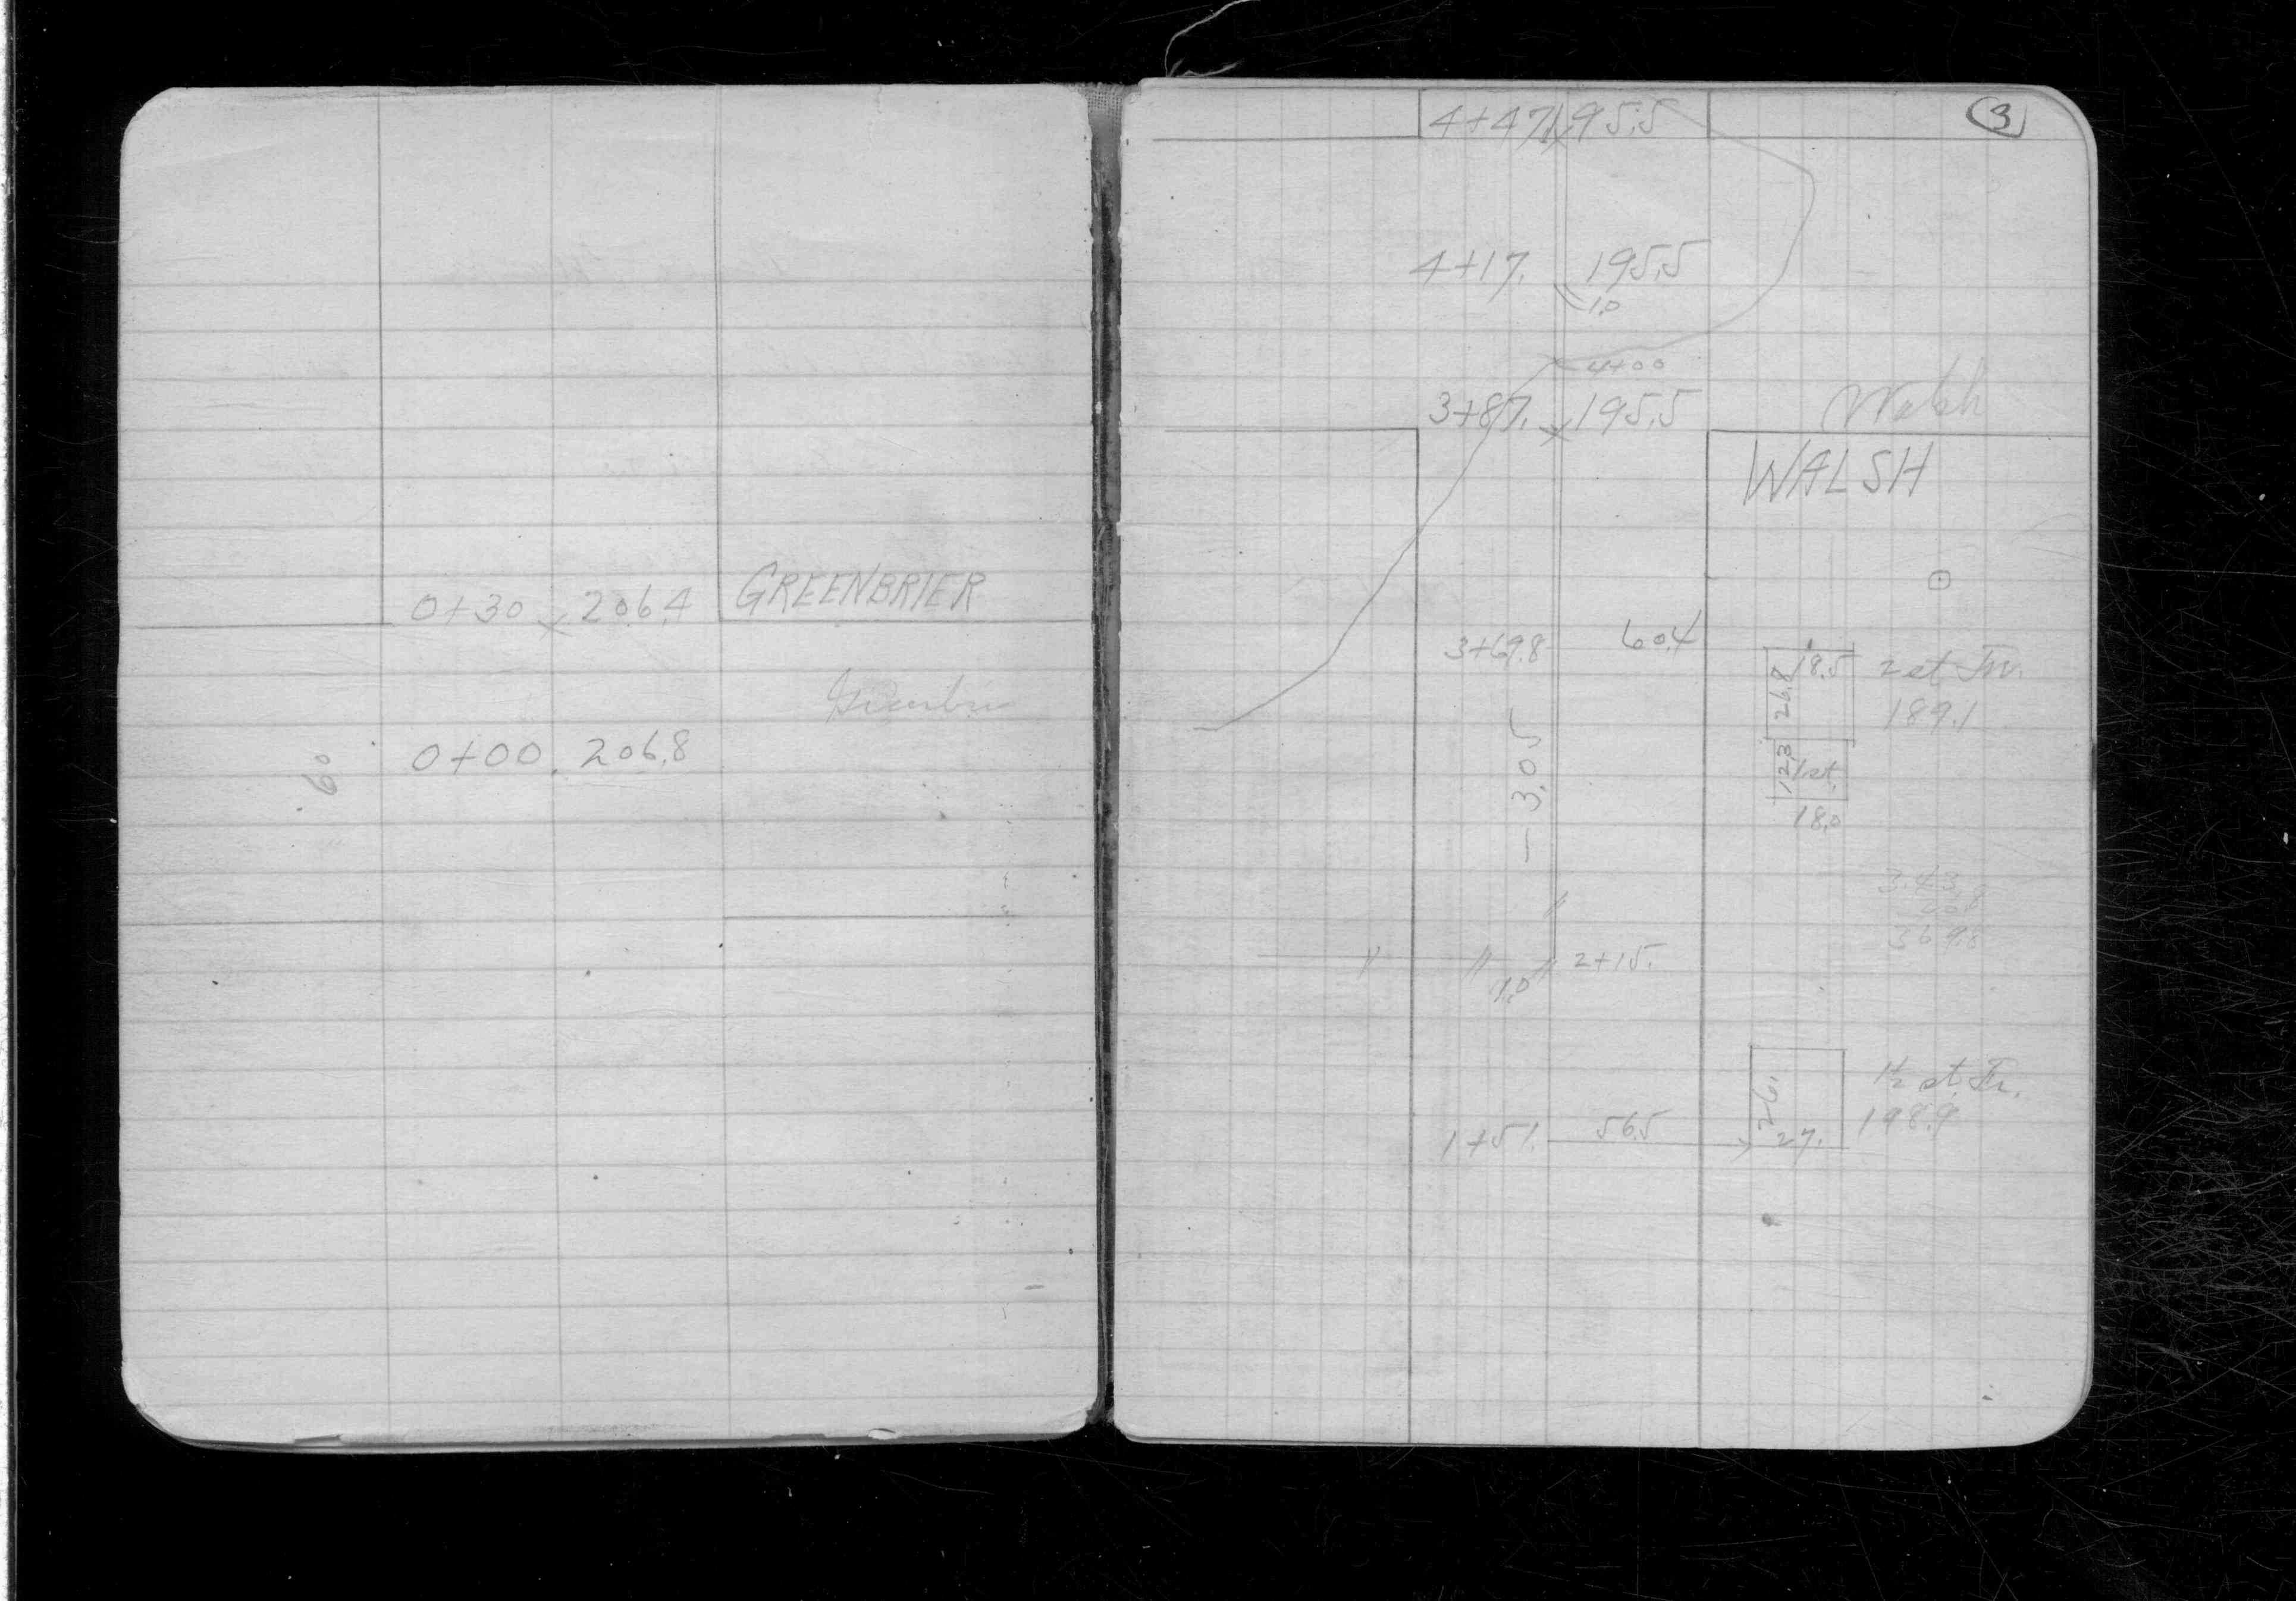 0+30 206.4 GREENBRIER
0+00. 206.8
60
3
4+47. 195.5
4+17. 195.5
1.0
4+00
3+87. 195.5
Walsh
WALSH
3+69.8 60.4
26.8 18.5 2 st Fr.
189.1
12.3 1 st.
18.0
- 3.05
3.43.
26.8
369.8
2+15.
1.0
1½ st. Fr.
26.
198.9
1+51. 56.5 27.